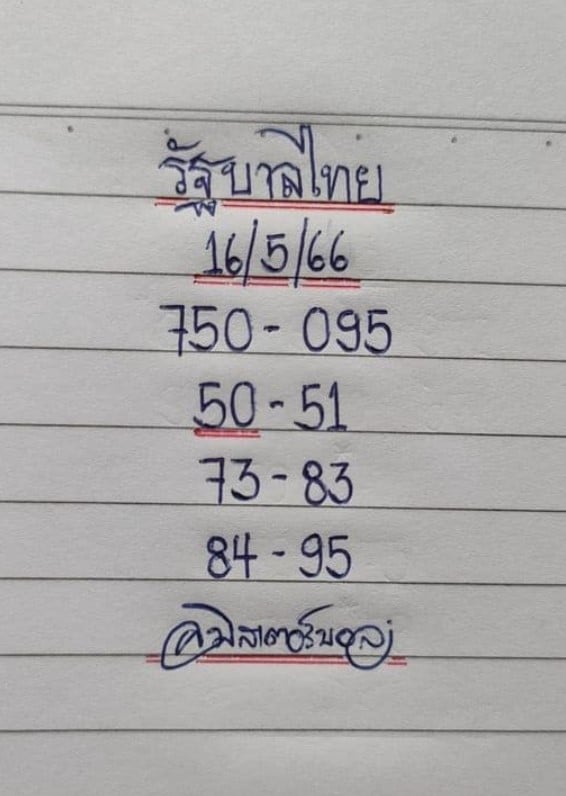 รัฐบาลไทย
16/5/66
750 - 095
50 - 51
73 - 83
84 - 95